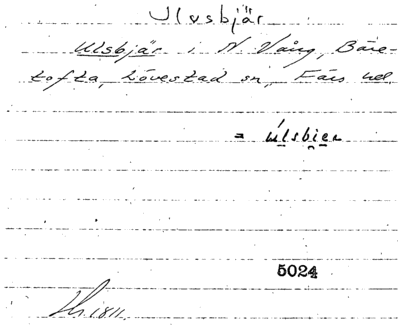 Ulvsbjär
Ulsbjär i N. Vång, Bäre-
tofta, Lövestad sn, Färs hd.
= úlsbier
5024
1811.